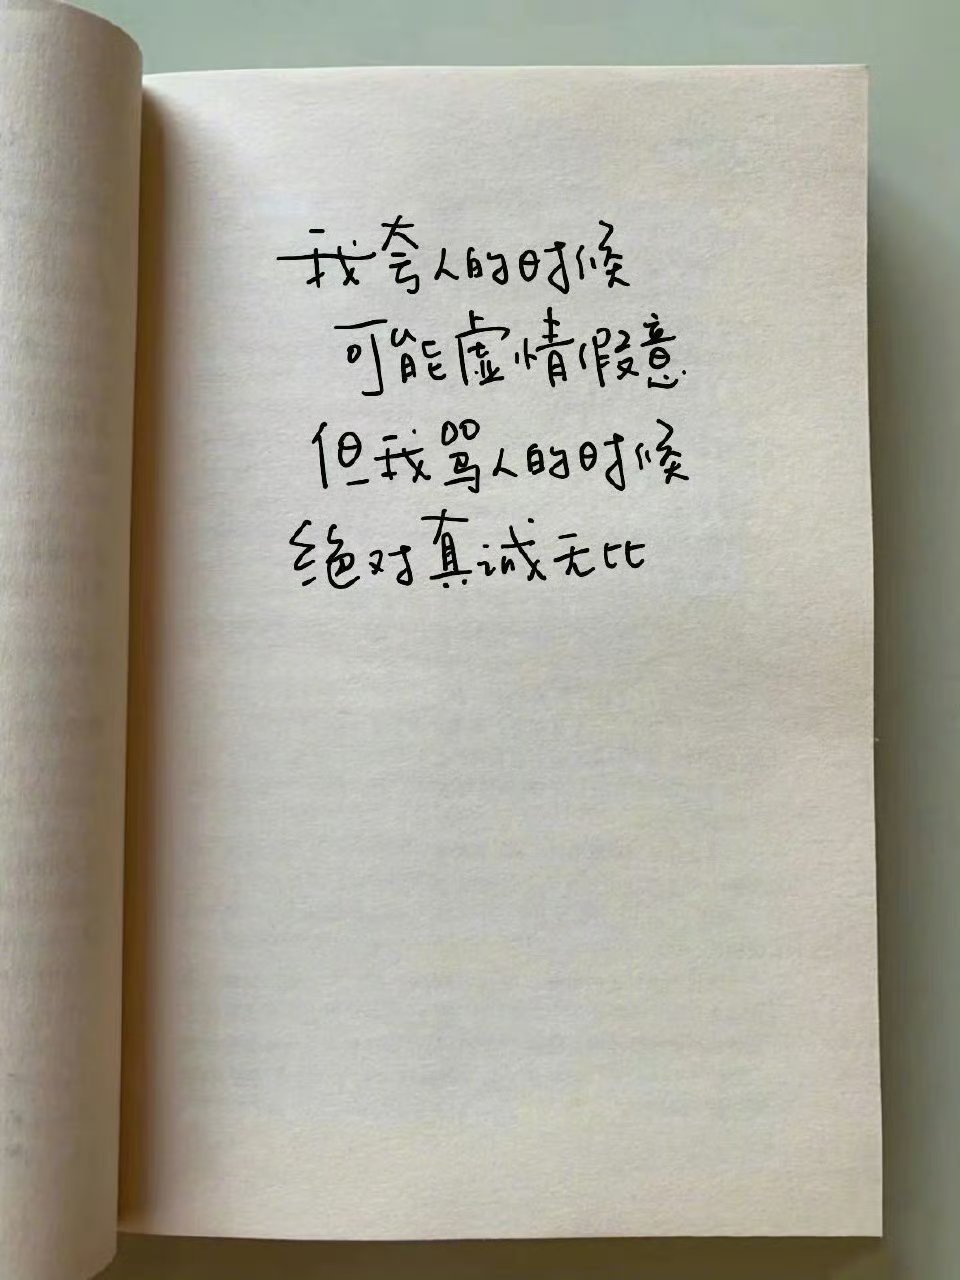 我夸人的时候
可能虚情假意
但我骂人的时候
绝对真诚无比